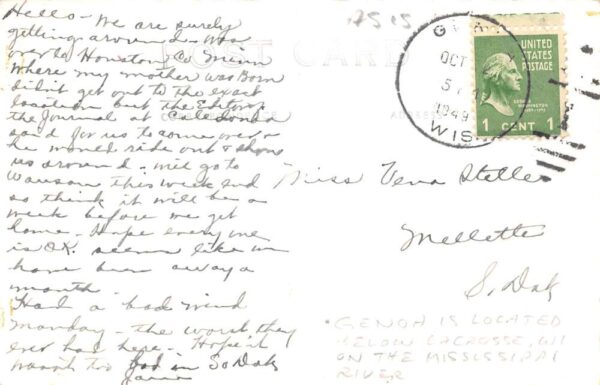 Hello - We are surely
getting around - was
over to Houston Co Minn
where my mother was Born
didn't get out to the exact
location but the Editor of
the Journal at Caledonia
said for us to come over &
he would ride out & show
us around - will go to
Wausau this week end
so think it will be a
week before we get
home - Hope everyone
is O.K. seems like we
have been away a
month
Had a bad wind
Monday - the worst they
ever had here - Hope it
wasn't too bad in So Dak
POST CARD
ADDRESS
OCT
5
1949
WIS.
UNITED
STATES
POSTAGE
GEORGE
WASHINGTON
1 CENT 1
Miss Vena Steller
Mellette
S. Dak
GENOA IS LOCATED
BELOW LACROSSE, WI
ON THE MISSISSIPPI
RIVER